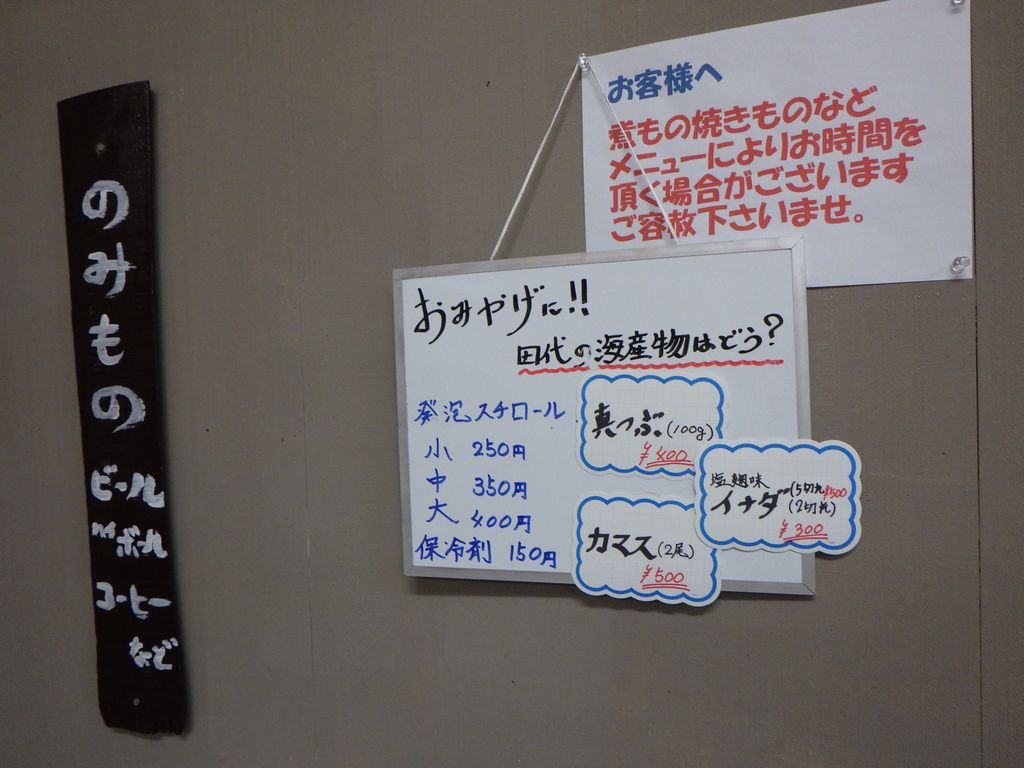 のみもの
ビール
ハイボール
コーヒー
など
お客様へ
煮もの焼きものなど
メニューによりお時間を
頂く場合がございます
ご容赦下さいませ。
おみやげに!!
田代の海産物はどう?
発泡スチロール
小 250円
中 350円
大 400円
保冷剤 150円
真つぶ(100g)
¥400
塩麹味
イナダ(5切れ)¥500
(2切れ)
¥300
カマス(2尾)
¥500